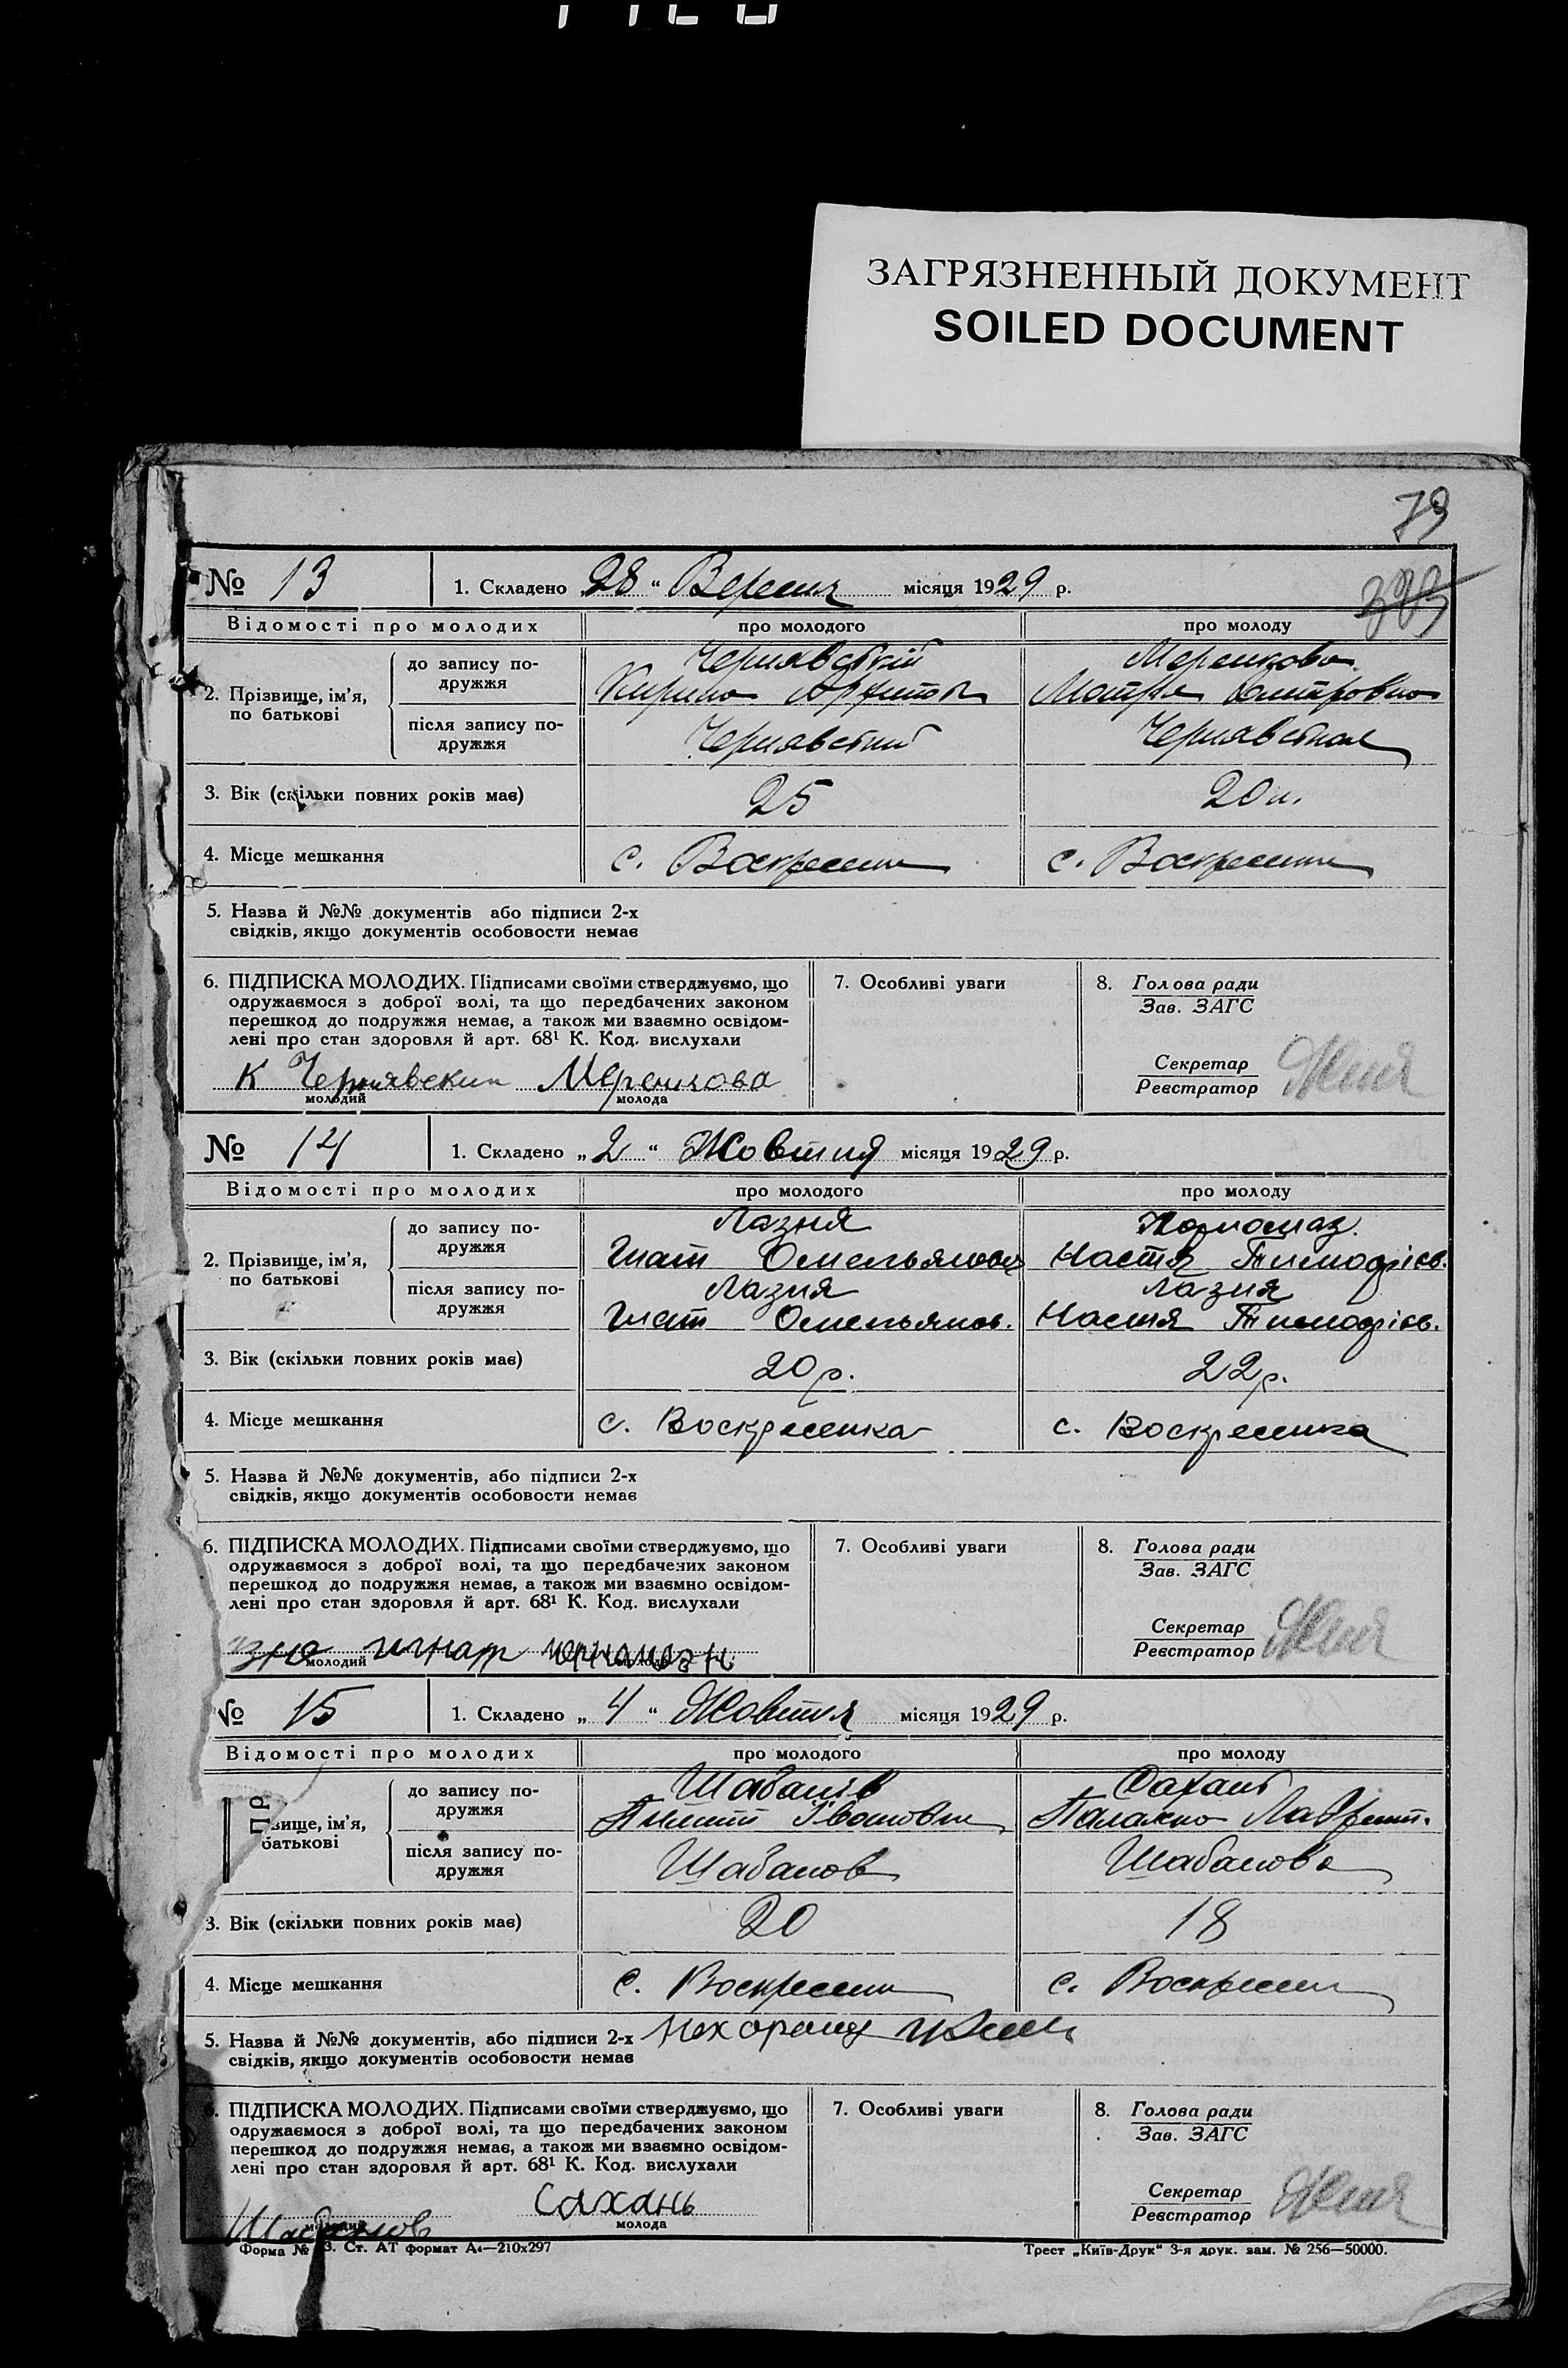 ЗАГРЯЗНЕННЫЙ ДОКУМЕНТ
SOILED DOCUMENT
79
№ 13 1. Складено 28 " Вересня місяця 1929 р.
Відомості про молодих про молодого про молоду
2. Прізвище, ім'я, по батькові
до запису подружжя
Чернявський
Меренкова
після запису подружжя
Чернявский
Чернявская
3. Вік (скільки повних років має) 25 20
4. Місце мешкання с. с.
5. Назва й №№ документів або підписи 2-х
свідків, якщо документів особовости немає
6. ПІДПИСКА МОЛОДИХ. Підписами своїми стверджуємо, що
одружаємося з доброї волі, та що передбачених законом
перешкод до подружжя немає, а також ми взаємно освідом-
лені про стан здоровля й арт. 68¹ К. Код. вислухали
К Чернявский Меренкова
молодий молода
7. Особливі уваги
8. Голова ради
Зав. ЗАГС
Секретар
Реєстратор
№ 14 1. Складено „ 2 " Жовтня місяця 1929 р.
Відомості про молодих про молодого про молоду
2. Прізвище, ім'я, по батькові
до запису подружжя
Лазня
Гнат Омельянов Настя Тимофієв.
після запису подружжя
Лазня Лазня
Гнат Омельянов. Настя Тимофієв.
3. Вік (скільки повних років має) 20 р. 22 р.
4. Місце мешкання с. Воскресенка с. Воскресенка
5. Назва й №№ документів, або підписи 2-х
свідків, якщо документів особовости немає
6. ПІДПИСКА МОЛОДИХ. Підписами своїми стверджуємо, що
одружаємося з доброї волі, та що передбачених законом
перешкод до подружжя немає, а також ми взаємно освідом-
лені про стан здоровля й арт. 68¹ К. Код. вислухали
игнат
молодий молода
7. Особливі уваги
8. Голова ради
Зав. ЗАГС
Секретар
Реєстратор
№ 15 1. Складено „ 4 " Жовтня місяця 1929 р.
Відомості про молодих про молодого про молоду
вище, ім'я, батькові
до запису подружжя
Шабанів Сахань
після запису подружжя
Шабанов Шабанова
3. Вік (скільки повних років має) 20 18
4. Місце мешкання с. с.
5. Назва й №№ документів, або підписи 2-х
свідків, якщо документів особовости немає
6. ПІДПИСКА МОЛОДИХ. Підписами своїми стверджуємо, що
одружаємося з доброї волі, та що передбачених законом
перешкод до подружжя немає, а також ми взаємно освідом-
лені про стан здоровля й арт. 68¹ К. Код. вислухали
Шабанов Сахань
молодий молода
7. Особливі уваги
8. Голова ради
Зав. ЗАГС
Секретар
Реєстратор
Форма № 3. Ст. АТ формат А₄—210х297
Трест „Київ-Друк" 3-я друк. зам. № 256—50000.